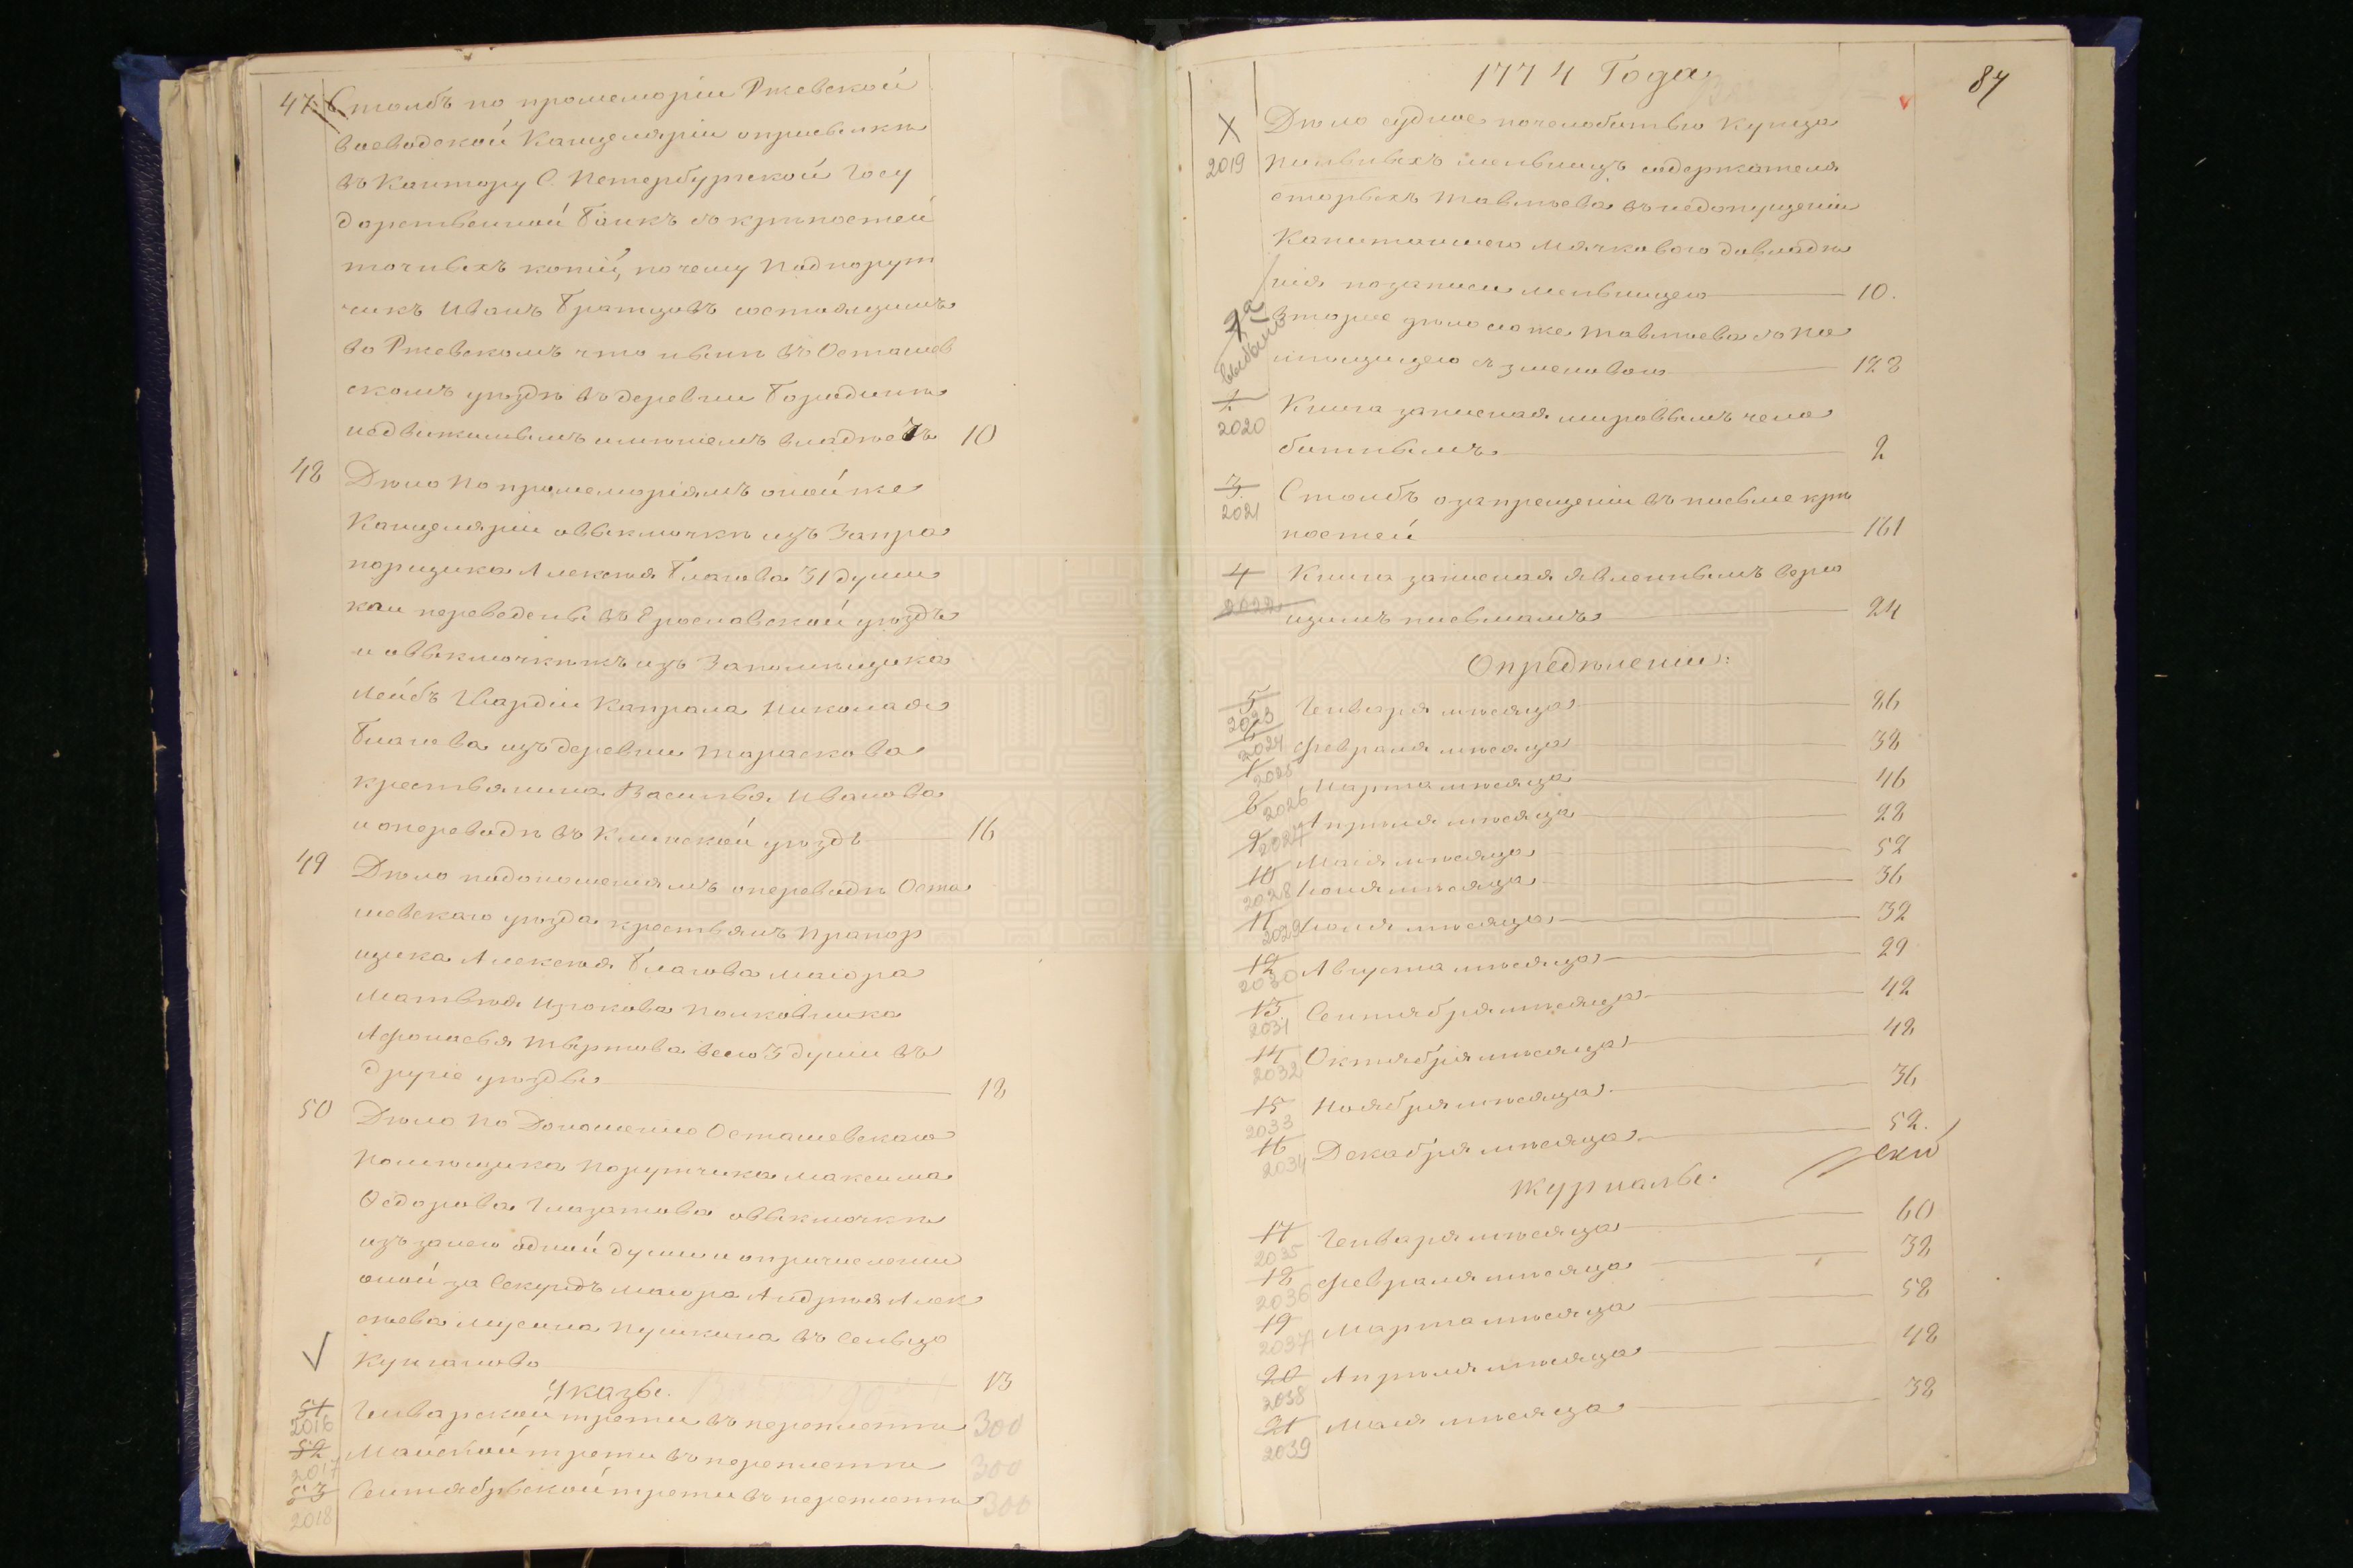 47. Столбъ по промеморіи Ржевской
воеводской Канцеляріи о присылкѣ
въ Кантору С. Петербургской Госу
дарственной Банкъ съ крѣпостей
точныхъ копій, почему Подпорут
чикъ Иванъ Братцовъ состоящимъ
во Ржевскомъ что нынѣ въ Осташев
скомъ уѣздѣ въ деревни Бородинѣ
недвижимымъ имѣніемъ владѣетъ 10
48 Дѣло по промеморіямъ оной же
Канцеляріи о выключкѣ изъ За пра
порщика Алексѣя Благова 31 души
кои переведены въ Ерославской уѣздъ
и о выключкѣ жъ изъ За помѣщика
Лейбъ Гвардіи Капрала Николая
Благова изъ деревни Тараскова
крестьянина Василья Иванова
и о переводѣ въ Клинской уѣздъ 16
49 Дѣло по доношеніямъ о переводѣ Оста
шевскаго уѣзда крестьянъ Прапор
щика Алексѣя Благова маіора
Матвѣя Полковника
Афонасья Тыртова всего 3 души въ
другіе уѣзды 18
50 Дѣло по Доношенію Осташевскаго
Помѣщика Порутчика Максима
Ѳедорова Глазатова о выключки
изъ за него одной души и о причисленіи
оной за Секундъ маіора Андрѣя Алек
сѣева Мусина Пушкина въ Сельцо
Курганово 13
Указы.
51 2016 Генварской трети въ переплетѣ 300
52 2017 Майской трети въ переплетѣ 300
53 2018 Сентябрьской трети въ переплетѣ 300
1774 Года 87
Х Дѣло судное по челобитью Купца
2019 мельницъ содержателя
въ недопущеніи
Мячковаго до владѣ
нія по записи мельницею 10.
2а Второе дѣло его же съ По
выбыло мѣщицею 128
2020 Книга записная мировымъ чело
битнымъ 2
3. Столбъ о запрещеніи въ письме крѣ
2021 постей 161
4 Книга записная явленнымъ вѣрю
2022 щимъ письмамъ 24
Опредѣленіи:
5 2023 Генваря мѣсяца 26
6 2024 Февраля мѣсяца 38
7 2025 Марта мѣсяца 46
8 2026 Апрѣля мѣсяца 28
9 2027 Маія мѣсяца 52
10 2028 Іюня мѣсяца 36
11 2029 Іюля мѣсяца 32
12 2030 Августа мѣсяца 29
13 2031 Сентября мѣсяца 42
14 2032 Октября мѣсяца 42
15 2033 Ноября мѣсяца 36
16 2034 Декабря мѣсяца 52.
Журналы.
17 2035 Генваря мѣсяца 60
18 2036 Февраля мѣсяца 32
19 2037 Марта мѣсяца 58
20 2038 Апрѣля мѣсяца 48
21 2039 Маія мѣсяца 38